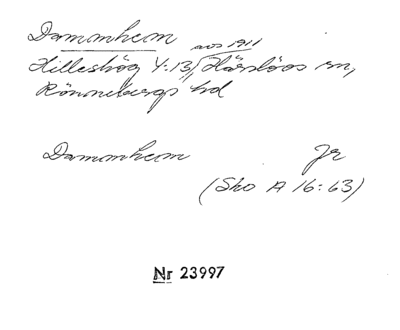 Dammhem avs 1911
Hilleshög 4:13, Härslövs sn,
Rönnebergs hd
Dammhem Jr
(Sko A 16:63)
Nr 23997